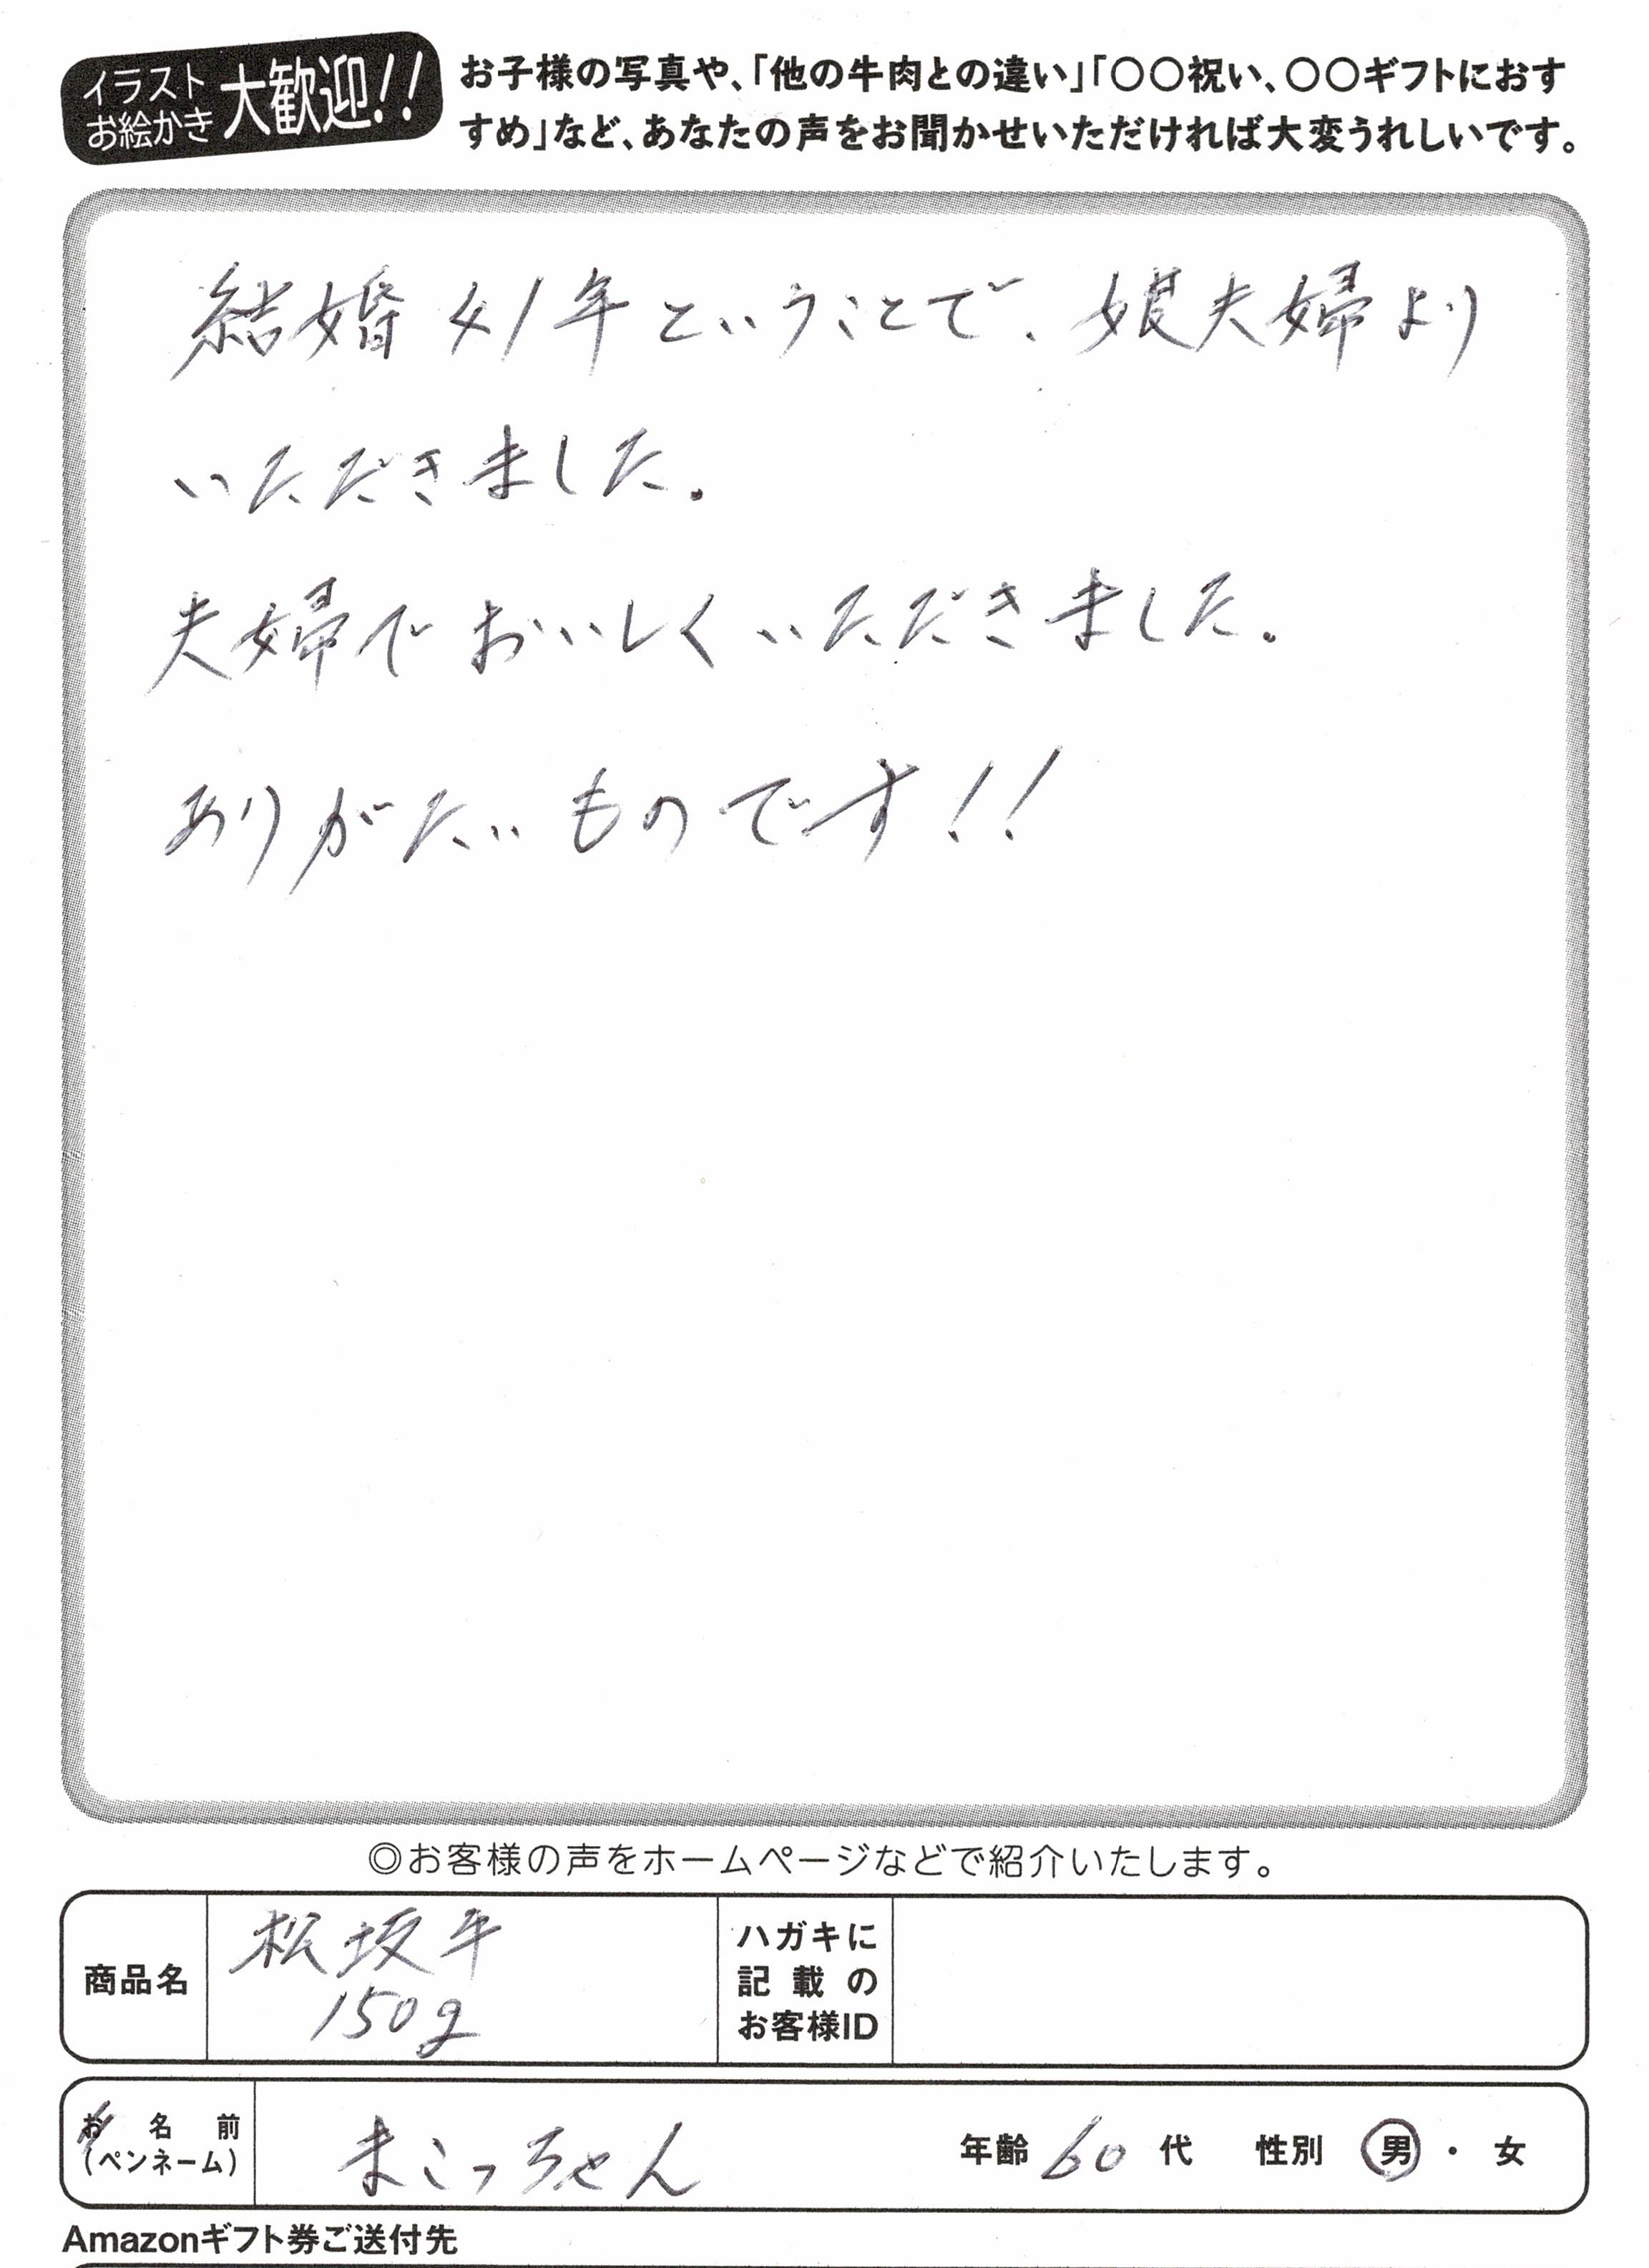 イラスト
お絵かき
大歓迎!!
お子様の写真や、「他の牛肉との違い」「〇〇祝い、〇〇ギフトにおす
すめ」など、あなたの声をお聞かせいただければ大変うれしいです。
結婚41年ということで、娘夫婦より
いただきました。
夫婦でおいしくいただきました。
ありがたいものです!!
◎お客様の声をホームページなどで紹介いたします。
商品名
松坂牛
150g
ハガキに
記載の
お客様ID
お名前
(ペンネーム)
まこっちゃん
年齢 60 代 性別 男・女
Amazonギフト券ご送付先